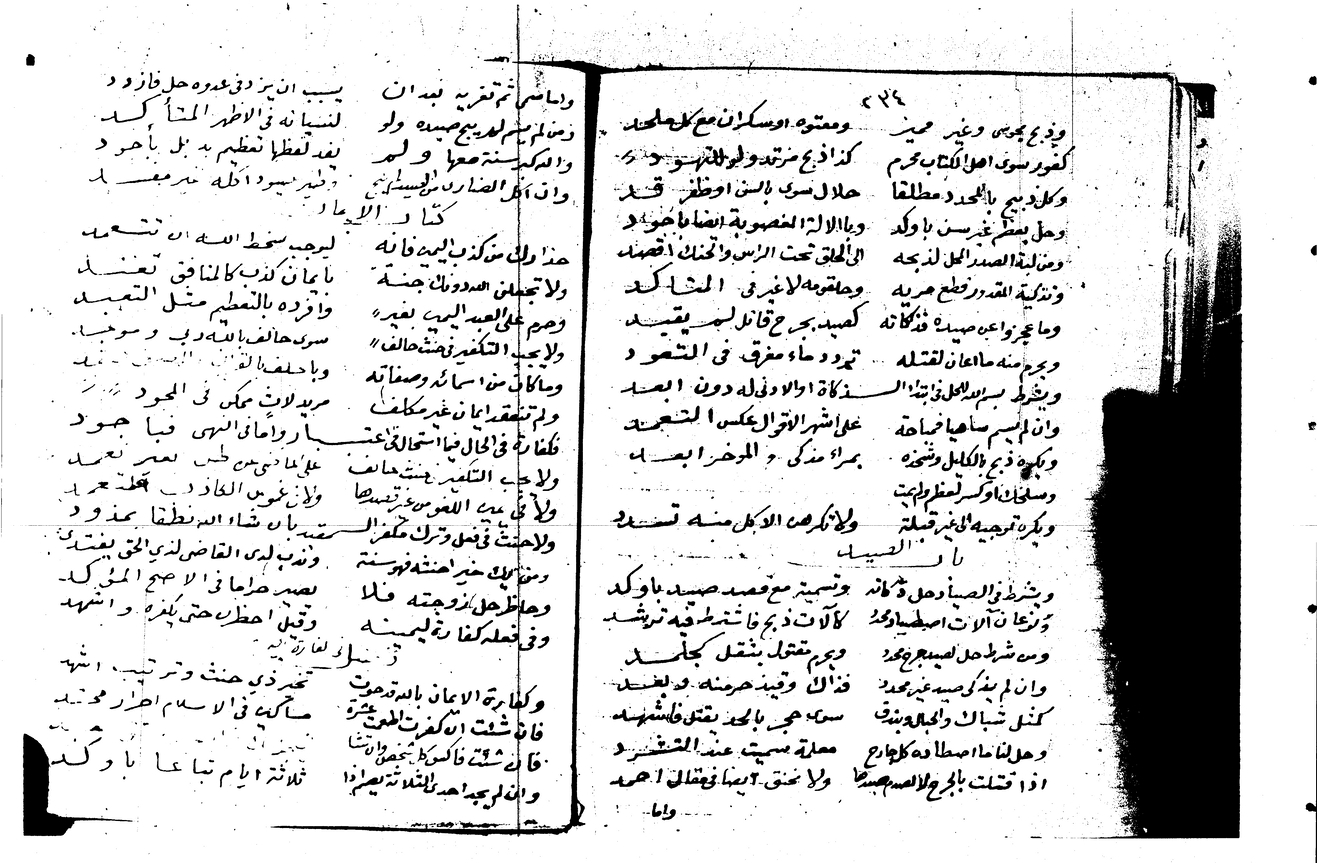 ٢٣٤
وذبح مجوسي وغير مميز ومعتوه او سكران مع كل ملحد
كفور سوى اهل الكتاب محرم كذا ذبح مرتد ولو للتهود
وكل ذبيح بالمحدد مطلقا حلال سوى بالسن او ظفر قد
وحل بعظم غير سن باوكد وبالالة المغصوبة ايضا باجود
ومن لبة الصدر المحل لذبحه الى الحلق تحت الراس والحنك اقصد
وتذكية المقدور قطع مريه وحلقومه لا غير في المتاكد
وما عجزوا عن صيده فذكاته كصيد بجرح قاتل لم يقيد
ويحرم منه ما اعان لقتله تردد ماء مغرق في التعود
ويشرط بسم الله للحل في ابتدا الذكاة او الادنى له دون ابعد
وان لم يسم ساهيا فمباحة على اشهر الاقوال عكس التعمد
ويكره ذبح بالكليل وشحذه بمراء مذكى والموخر ابعد
وسلخك او كسر لعظم ولم يمت
ويكره توجيه الى غير قبلة ولا تكرهن الاكل منه تسدد
باب الصيد
ويشرط في الصياد حل ذكاته وتسمية مع قصد صيد باوكد
ونوعان آلات اصطياد محدد كآلات ذبح فاشترط فيه ترشد
ومن شرط حل الصيد جرح محدد ويحرم مقتول بثقل كجلمد
وان لم يذكى صيد غير محدد فذاك وقيذ حرمنه وبعد
كمثل شباك والحبال وبندق سوى حجر بالحد يقتل فاشهد
وحل لنا ما اصطاده كل جارح معلمة سميت عند التشرد
اذا قتلت بالجرح لا الصدم صيدها ولا خنق ايضا في مقال احمد
واما
واما متى ثم تغريه بعد ان يسب ان يزد في عدوه حل فازدد
ومن لم يسم لم يبح صيده ولو لنسيانه في الاظهر المتأكد
والله اكبر سنة معها ولم يفد لفظها تعظيم بد بل بأجود
وان اكل الضاري من الصيد لم يبح
كتاب الايمان
حذارك من كذب اليمين فانه ليوجب سخط الله ان تتعمد
ولا تجعلن الله دونك جنة بايمان كذب كالمنافق تعتد
وحرم على العبد اليمين بغيره وافرده بالتعظيم مثل التعبد
ولا يجب التكفير في حنث حالف سوى حالف بالله ربي وموجد
وما كان من اسمائه وصفاته وبا حلف بالقران
ولم تنعقد ايمان غير مكلف مريد لات ممكن في المجود
فكفارة في الحال فيما استحال في اعتبار واما في النهى فبا جود
ولا يجب التكفير في حنث حالف على الماضي عن ظن بغير تعمد
ولا في يمين اللغو من غير قصدها ولا في غموس الكاذب المتعمد
ولا حنث في فعل وترك مكفر اليمين بان شاء الله نطقا بمذود
ومن يك خير احنثه فهو سنة وندب لدى القاضي لذي الحق يفتدي
وحاظر حل لا زوجته فلا يصير حراما في الاصح المؤكد
وفي فعله كفارة ليمينه وقيل احظرن حتى يكفره واشهد
فصل في كفارة اليمين
وكفارة الايمان بالله قد حوت تخير ذي حنث وترتيب اشهد
فان شئت ان كفرت اطعمت عشرة مساكين في الاسلام احرار محتد
فان شئت فاكس كل شخص وان تشا
وان لم يجد احدى الثلاثة يصم اذا ثلاثة ايام تباعا باوكد